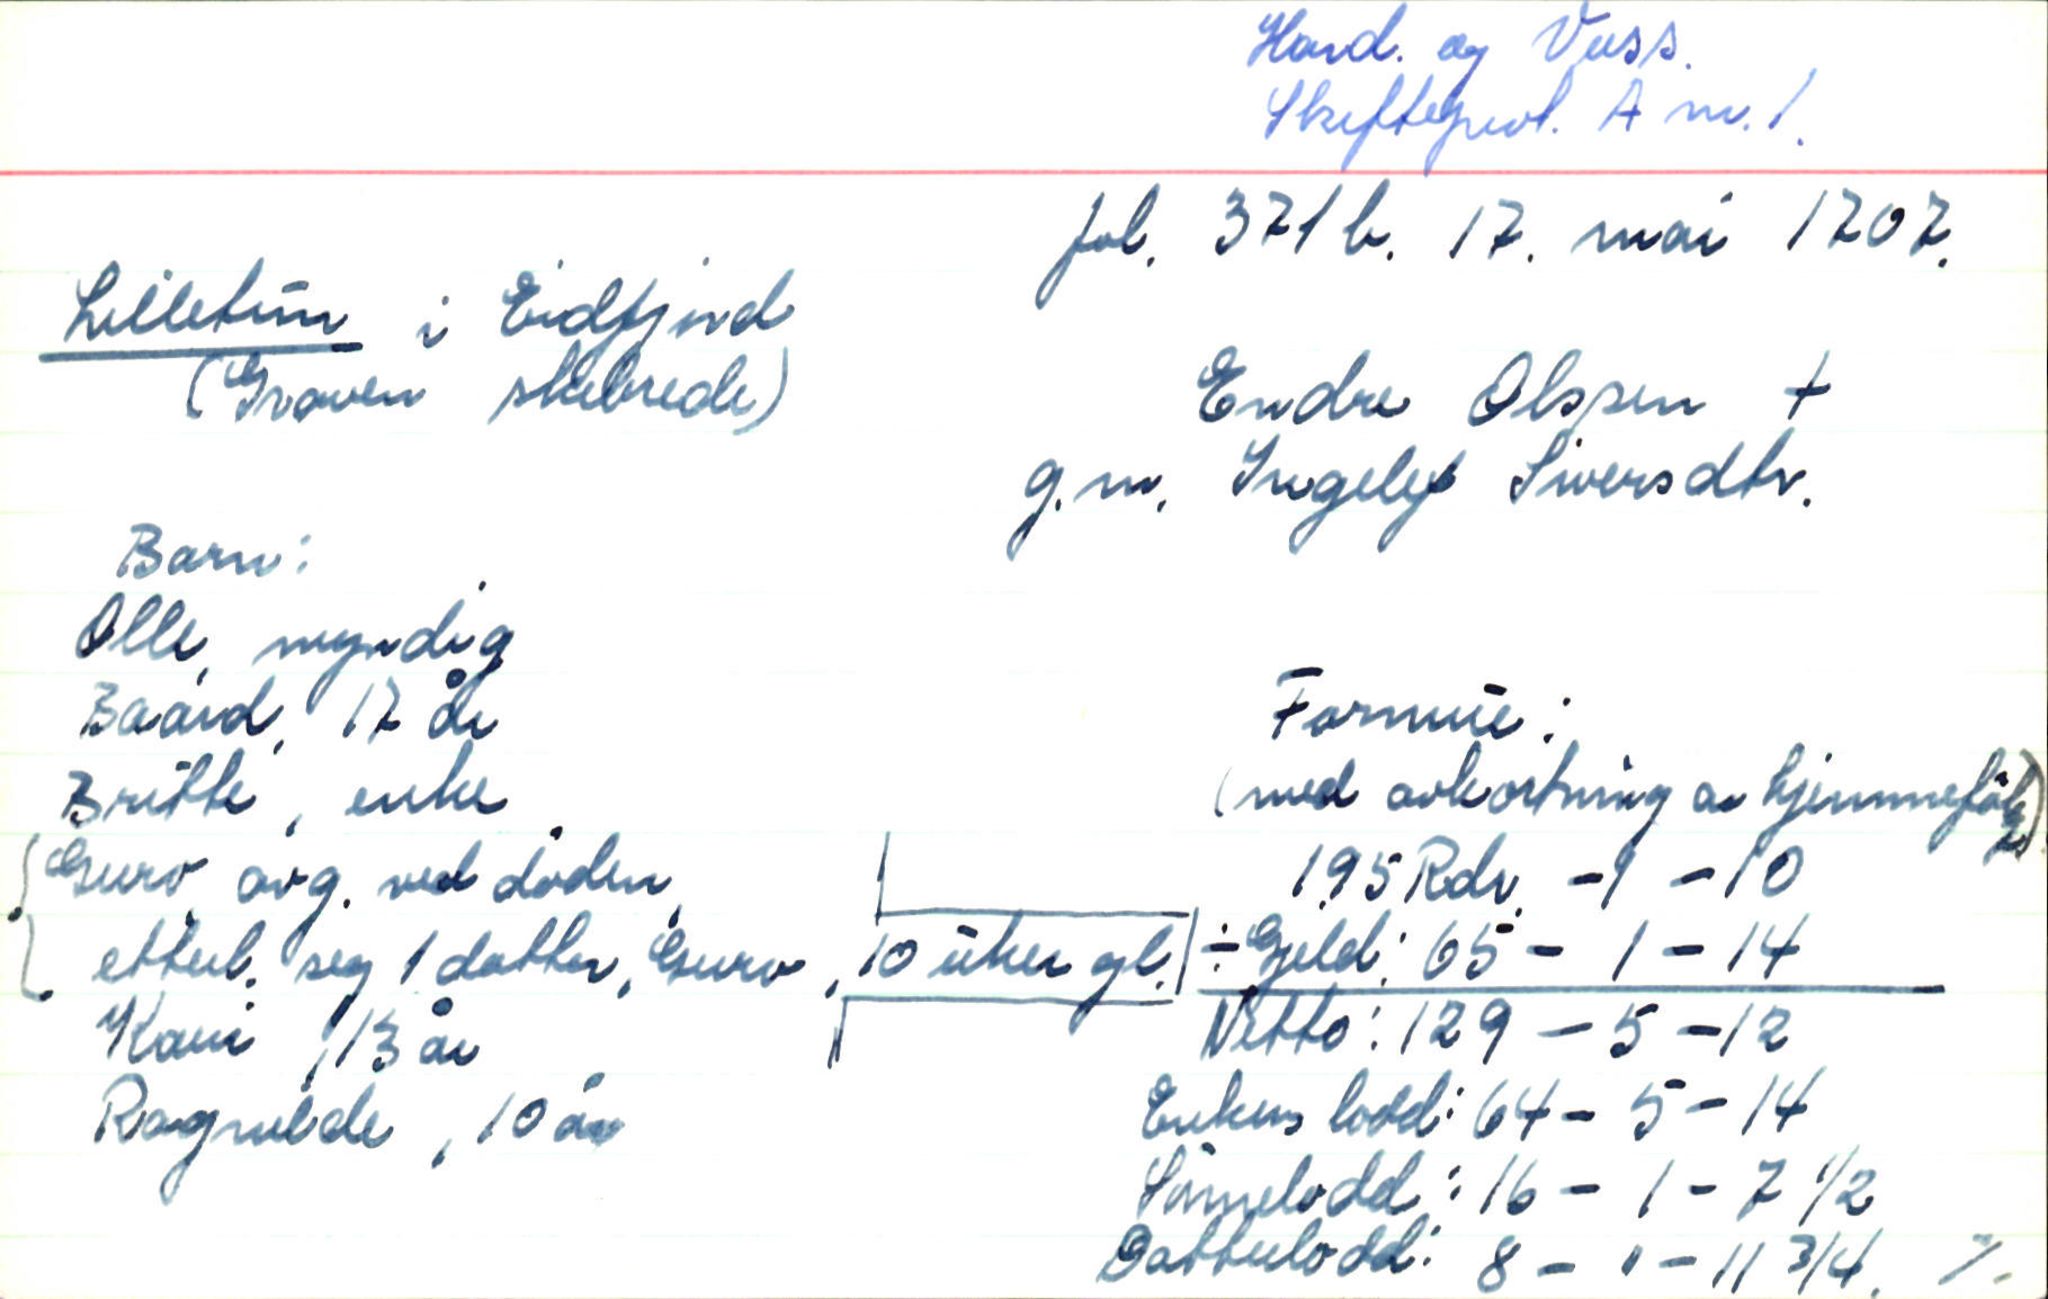 Hard. og Voss.
Skifteprot. A nr. 1.
fol. 371 b. 17. mai 1707.
Lilletūn i Eidfjord
(Graven skibrede)
Endre Olssen †
g.m. Ingelef Siversdtr.
Barn:
Olle, myndig
Baard, 17 år
Britte, enke
Guro avg. ved døden,
etterl. seg 1 datter, Guro, 10 ūker gl.
Kari, 13 år
Ragnilde, 10 år
Formūe:
(med avkortning av hjemmefølge)
195 Rdr. - 1 - 10
÷ Gjeld: 65 - 1 - 14
Netto: 129 - 5 - 12
Enkens lodd: 64 - 5 - 14
Sønnelodd: 16 - 1 - 7 1/2
Datterlodd: 8 - " - 11 3/4. ./.